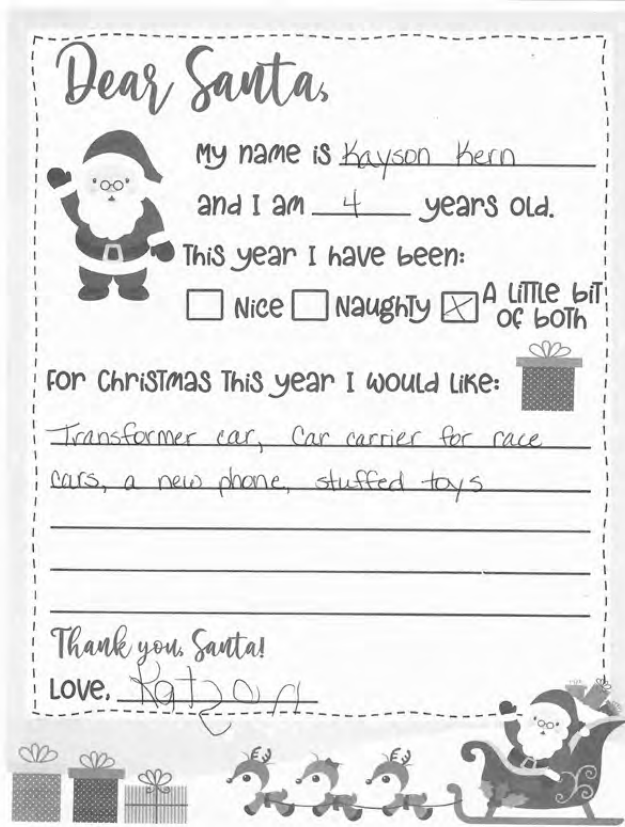 Dear Santa,
My name is Kayson Kern
and I am 4 years old.
This year I have been:
Nice Naughty A little bit of both
For Christmas this year I would like:
Transformer car, Car carrier for race
cars, a new phone, stuffed toys
Thank you, Santa!
Love, Kayson